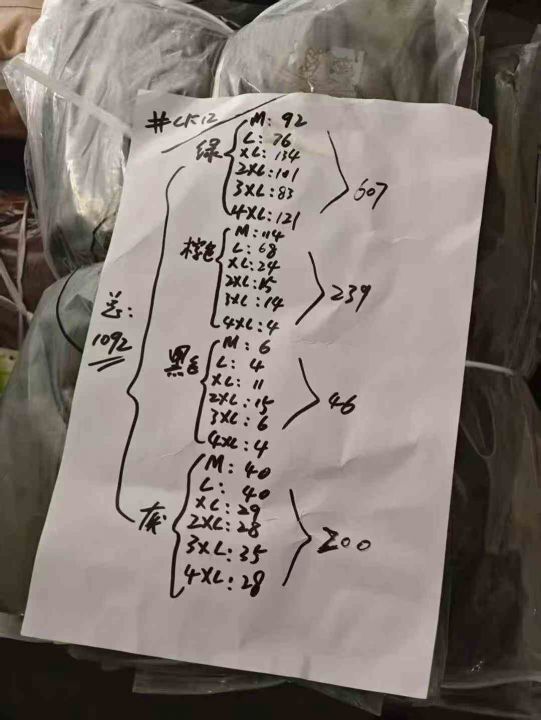 #CK12
绿 M: 92
L: 76
XL: 134
2XL: 101
3XL: 83
4XL: 121
607
棕色 M: 114
L: 68
XL: 24
2XL: 15
3XL: 14
4XL: 4
239
总:
1092
黑色 M: 6
L: 4
XL: 11
2XL: 15
3XL: 6
4XL: 4
46
灰 M: 40
L: 40
XL: 29
2XL: 28
3XL: 35
4XL: 28
200